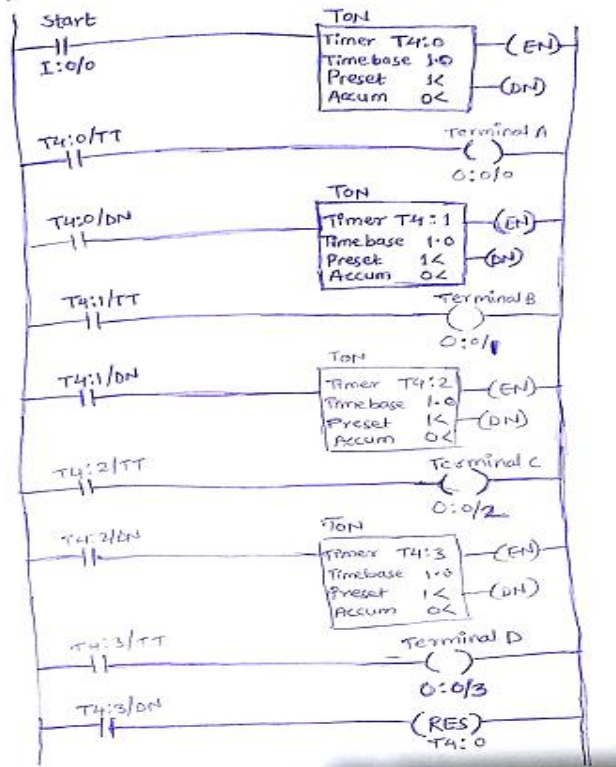 Start
I:0/0
TON
Timer T4:0
Timebase 1.0
Preset 1<
Accum 0<
(EN)
(DN)
T4:0/TT
Terminal A
O:0/0
T4:0/DN
TON
Timer T4:1
Timebase 1.0
Preset 1<
Accum 0<
(EN)
(DN)
T4:1/TT
Terminal B
O:0/1
T4:1/DN
TON
Timer T4:2
Timebase 1.0
Preset 1<
Accum 0<
(EN)
(DN)
T4:2/TT
Terminal C
O:0/2
T4:2/DN
TON
Timer T4:3
Timebase 1.0
Preset 1<
Accum 0<
(EN)
(DN)
T4:3/TT
Terminal D
O:0/3
T4:3/DN
(RES)
T4:0